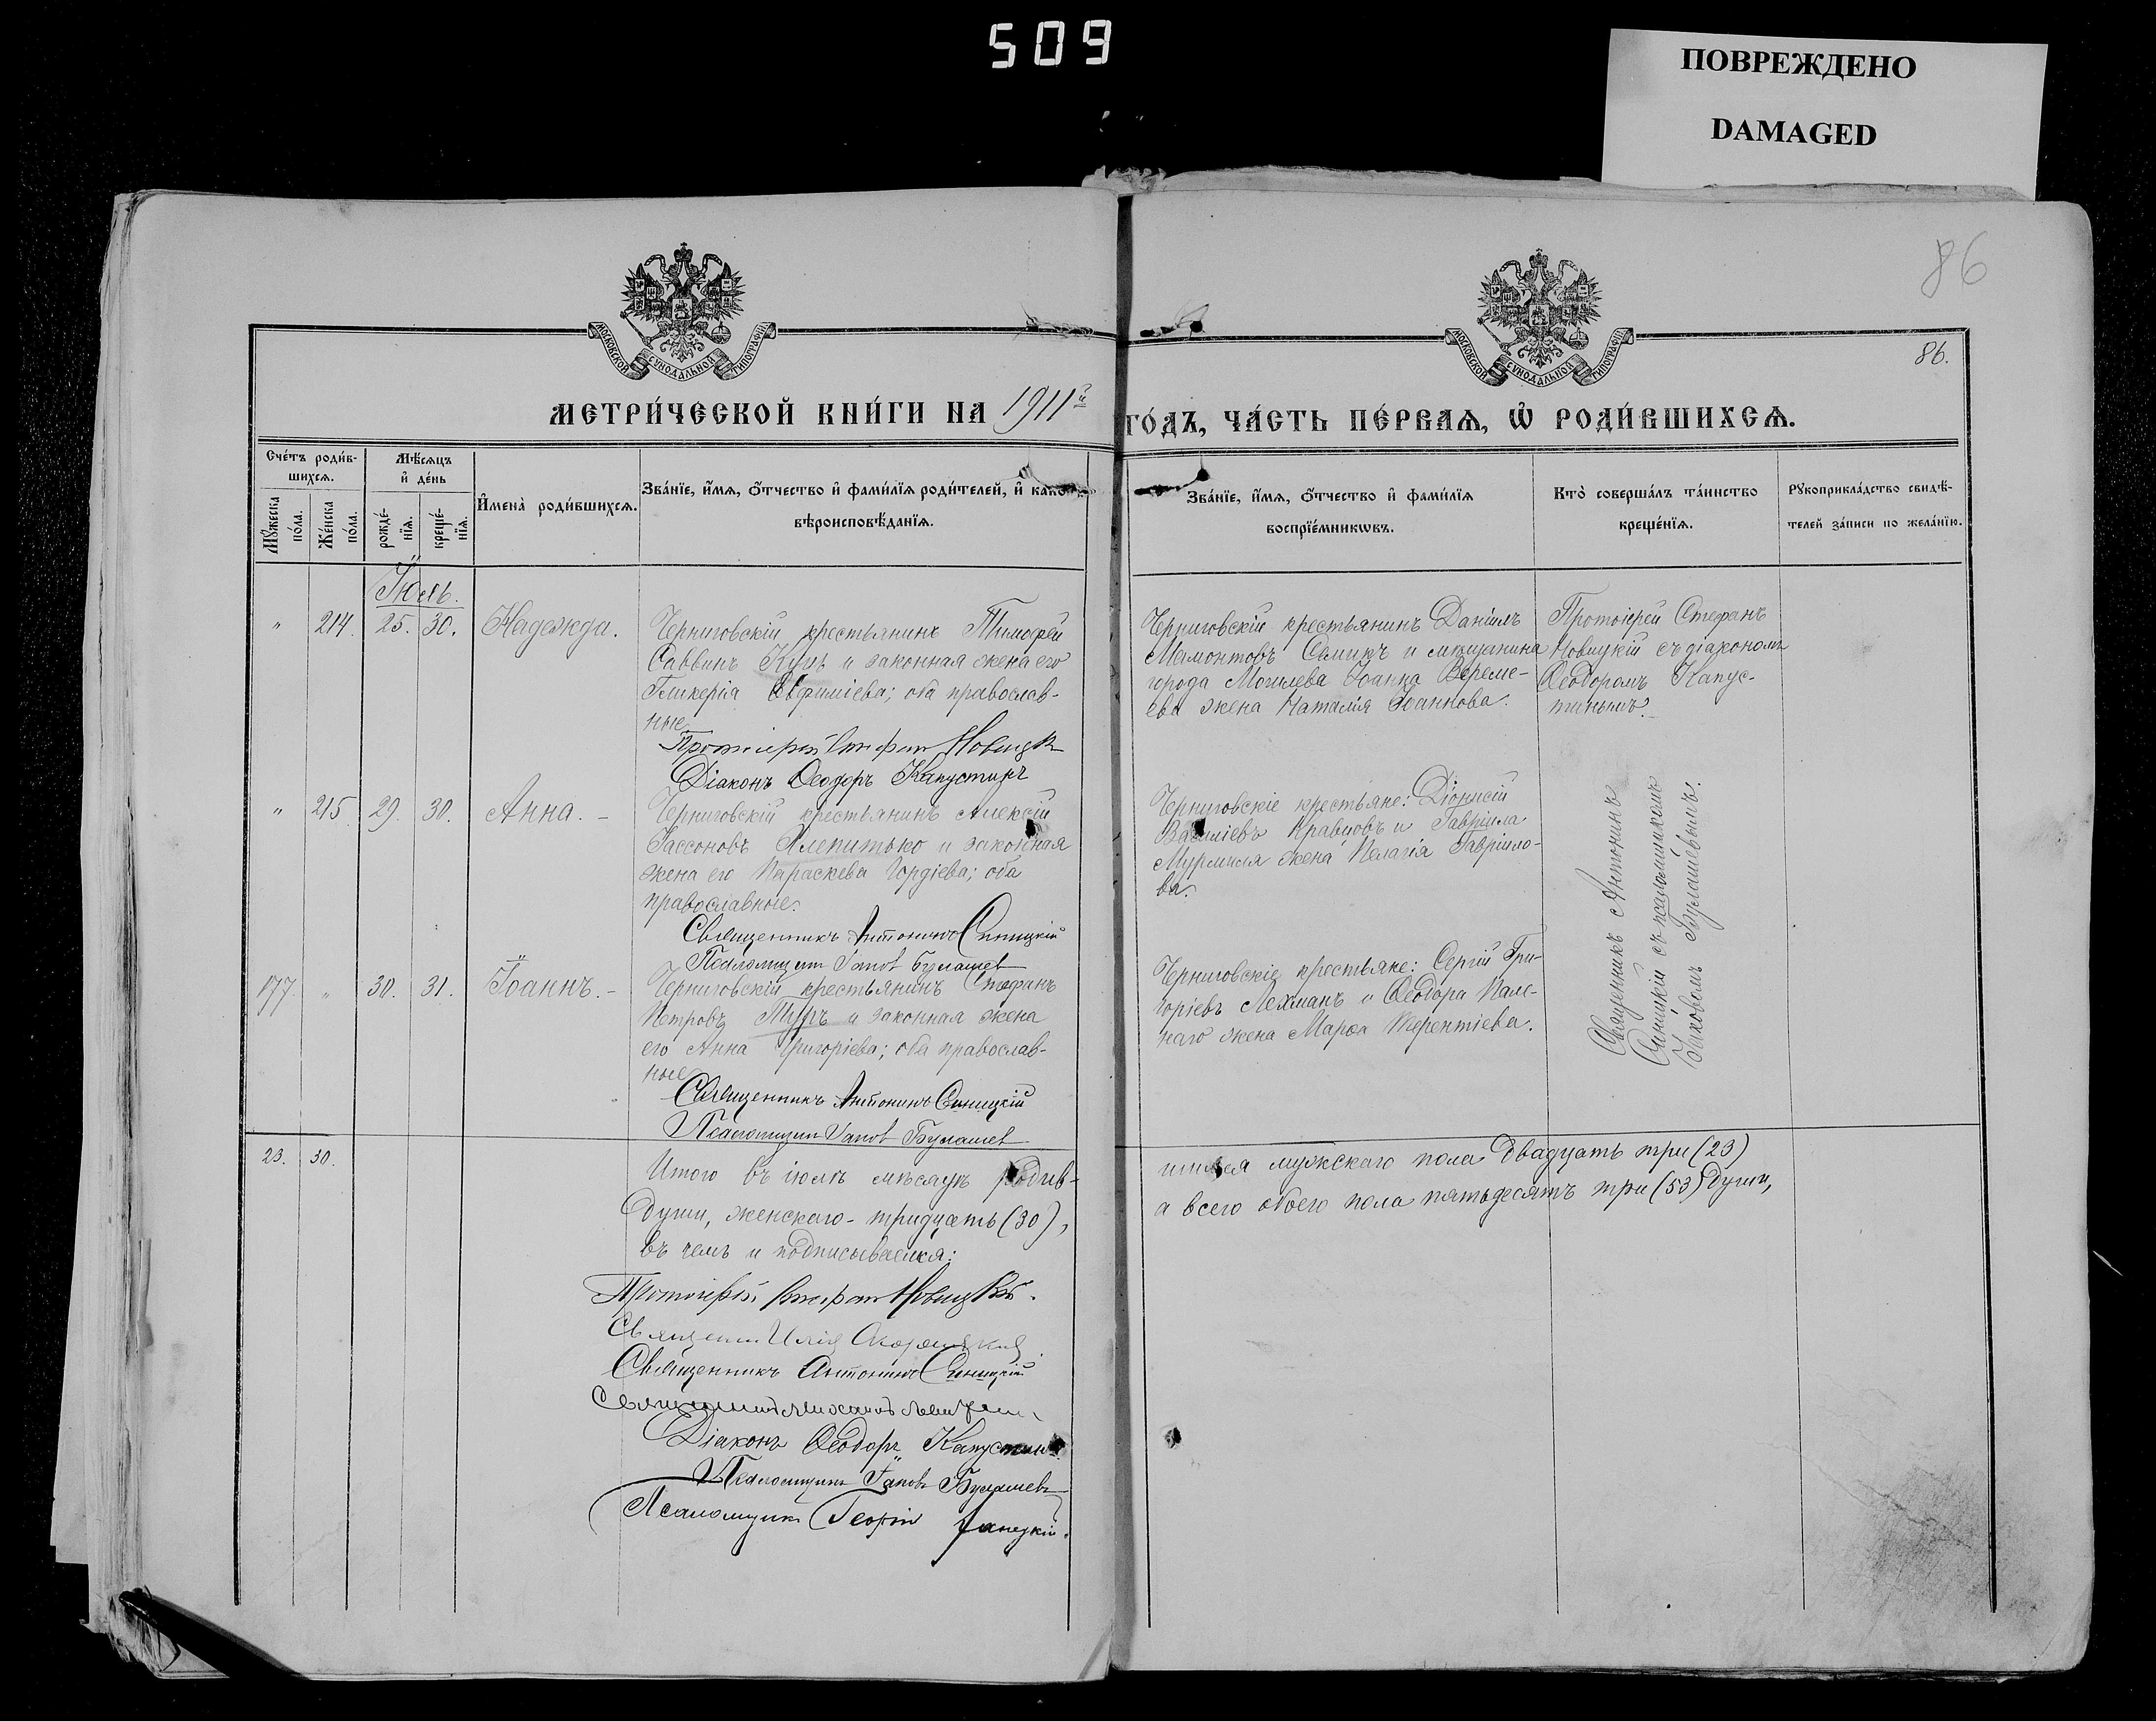 509
ПОВРЕЖДЕНО
DAMAGED
86
86.
МОСКОВСКОЙ СѴНОДАЛЬНОЙ ТИПОГРАФІИ
МОСКОВСКОЙ СѴНОДАЛЬНОЙ ТИПОГРАФІИ
МЕТРИ́ЧЕСКОЙ КНИ́ГИ НА 1911й ГО́ДЪ, ЧА́СТЬ ПЕ́РВАѦ, Ѡ҆ РОДИ́ВШИХСѦ.
Сче́тъ роди́в-
шихсѧ.
Мꙋ́жеска
по́ла.
Же́нска
по́ла.
Мѣ́сѧцъ
и҆ де́нь
рожде́-
нїѧ.
креще́-
нїѧ.
И҆мена̀ роди́вшихсѧ.
Зва́нїе, и҆́мѧ, ѻ҆́тчество и҆ фами́лїѧ роди́телей, и҆ како́гѡ
вѣроисповѣ́данїѧ.
Зва́нїе, и҆́мѧ, ѻ҆́тчество и҆ фами́лїѧ
воспрїе́мникѡвъ.
Кто̀ соверша́лъ та́инство
креще́нїѧ.
Рꙋкоприкла́дство свидѣ́-
телей за́писи по жела́нїю.
Іюль.
" 214. 25. 30. Надежда.
Черниговскій крестьянинъ Тимофей
Саввинъ Куцъ и законная жена его
Гликерія Евфиміева; оба православ-
ные.
Протоіерей Стефанъ Новицкій
Діаконъ Ѳеодоръ Капустинъ
Черниговскій крестьянинъ Даніилъ
Мамонтовъ Семикъ и мѣщанина
города Могилева Іоанна Вереме-
ева жена Наталія Іоаннова.
Протоіерей Стефанъ
Новицкій съ діакономъ
Ѳеодоромъ Капус-
тинымъ.
" 215. 29. 30. Анна. –
Черниговскій крестьянинъ Алексій
Іассоновъ Слепитько и законная
жена его Параскева Гордіева; оба
православные.
Священникъ Антонинъ Синицкій
Псаломщикъ Іаковъ Булашевъ
Черниговскіе крестьяне: Діонисій
Василіевъ Кравцовъ и Гавріила
жена Пелагія Гавріило-
ва.
Священникъ Антонинъ
Синицкій съ псаломщикомъ
Іаковомъ Булашевымъ.
177 " 30. 31. Іоаннъ. –
Черниговскій крестьянинъ Стефанъ
Петровъ Туръ и законная жена
его Анна Григоріева; оба православ-
ные.
Священникъ Антонинъ Синицкій
Псаломщикъ Іаковъ Булашевъ
Черниговскіе крестьяне: Сергій Гри-
горіевъ Лехманъ и Ѳеодора Пале-
наго жена Марѳа Терентіева.
23. 30.
Итого въ іюлѣ мѣсяцѣ родив-
шихся мужскаго пола двадцать три (23)
души, женскаго – тридцать (30),
а всего обоего пола пятьдесятъ три (53) души,
въ чемъ и подписываемся:
Протоіерей Стефанъ Новицкій.
Священникъ Илія
Священникъ Антонинъ Синицкій
Священникъ Михаилъ
Діаконъ Ѳеодоръ Капустинъ
Псаломщикъ Іаковъ Булашевъ
Псаломщикъ Георгій